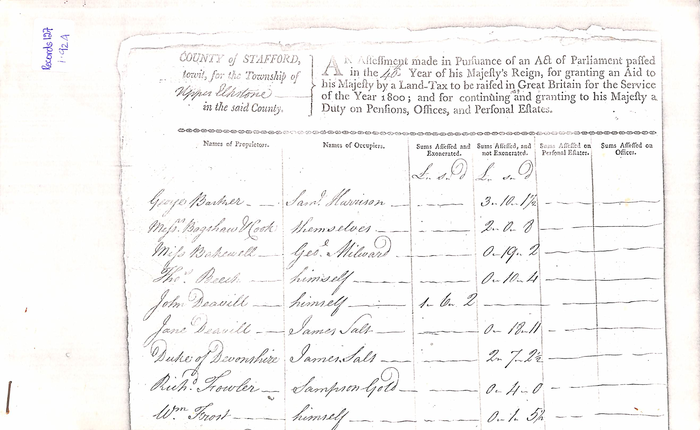 Records 127
1-92A
COUNTY of STAFFORD,
towit, for the Township of
Upper Elkstone
in the said County.
AN Assessment made in Pursuance of an Act of Parliament passed
in the 40th Year of his Majesty's Reign, for granting an Aid to
his Majesty by a Land-Tax to be raised in Great Britain for the Service
of the Year 1800; and for continuing and granting to his Majesty a
Duty on Pensions, Offices, and Personal Estates.
Names of Proprietors. Names of Occupiers. Sums Assessed and Exonerated. Sums Assessed, and not Exonerated. Sums Assessed on Personal Estates. Sums Assessed on Offices.
£ s d £ s d
George Barker Saml. Harrison 3 - 10 - 1½
Messrs Bagshaw & Cook themselves 2 - 0 - 8
Miss Bakewell Geo. Milward 0 - 19 - 2
Thos. Beech himself 0 - 10 - 4
John Deavill himself 1 - 6 - 2
Jane Deavill James Salt 0 - 18 - 11
Duke of Devonshire James Salt 2 - 7 - 2½
Richd. Fowler Sampson Gold 0 - 4 - 0
Wm Frost himself 0 - 1 - 5½